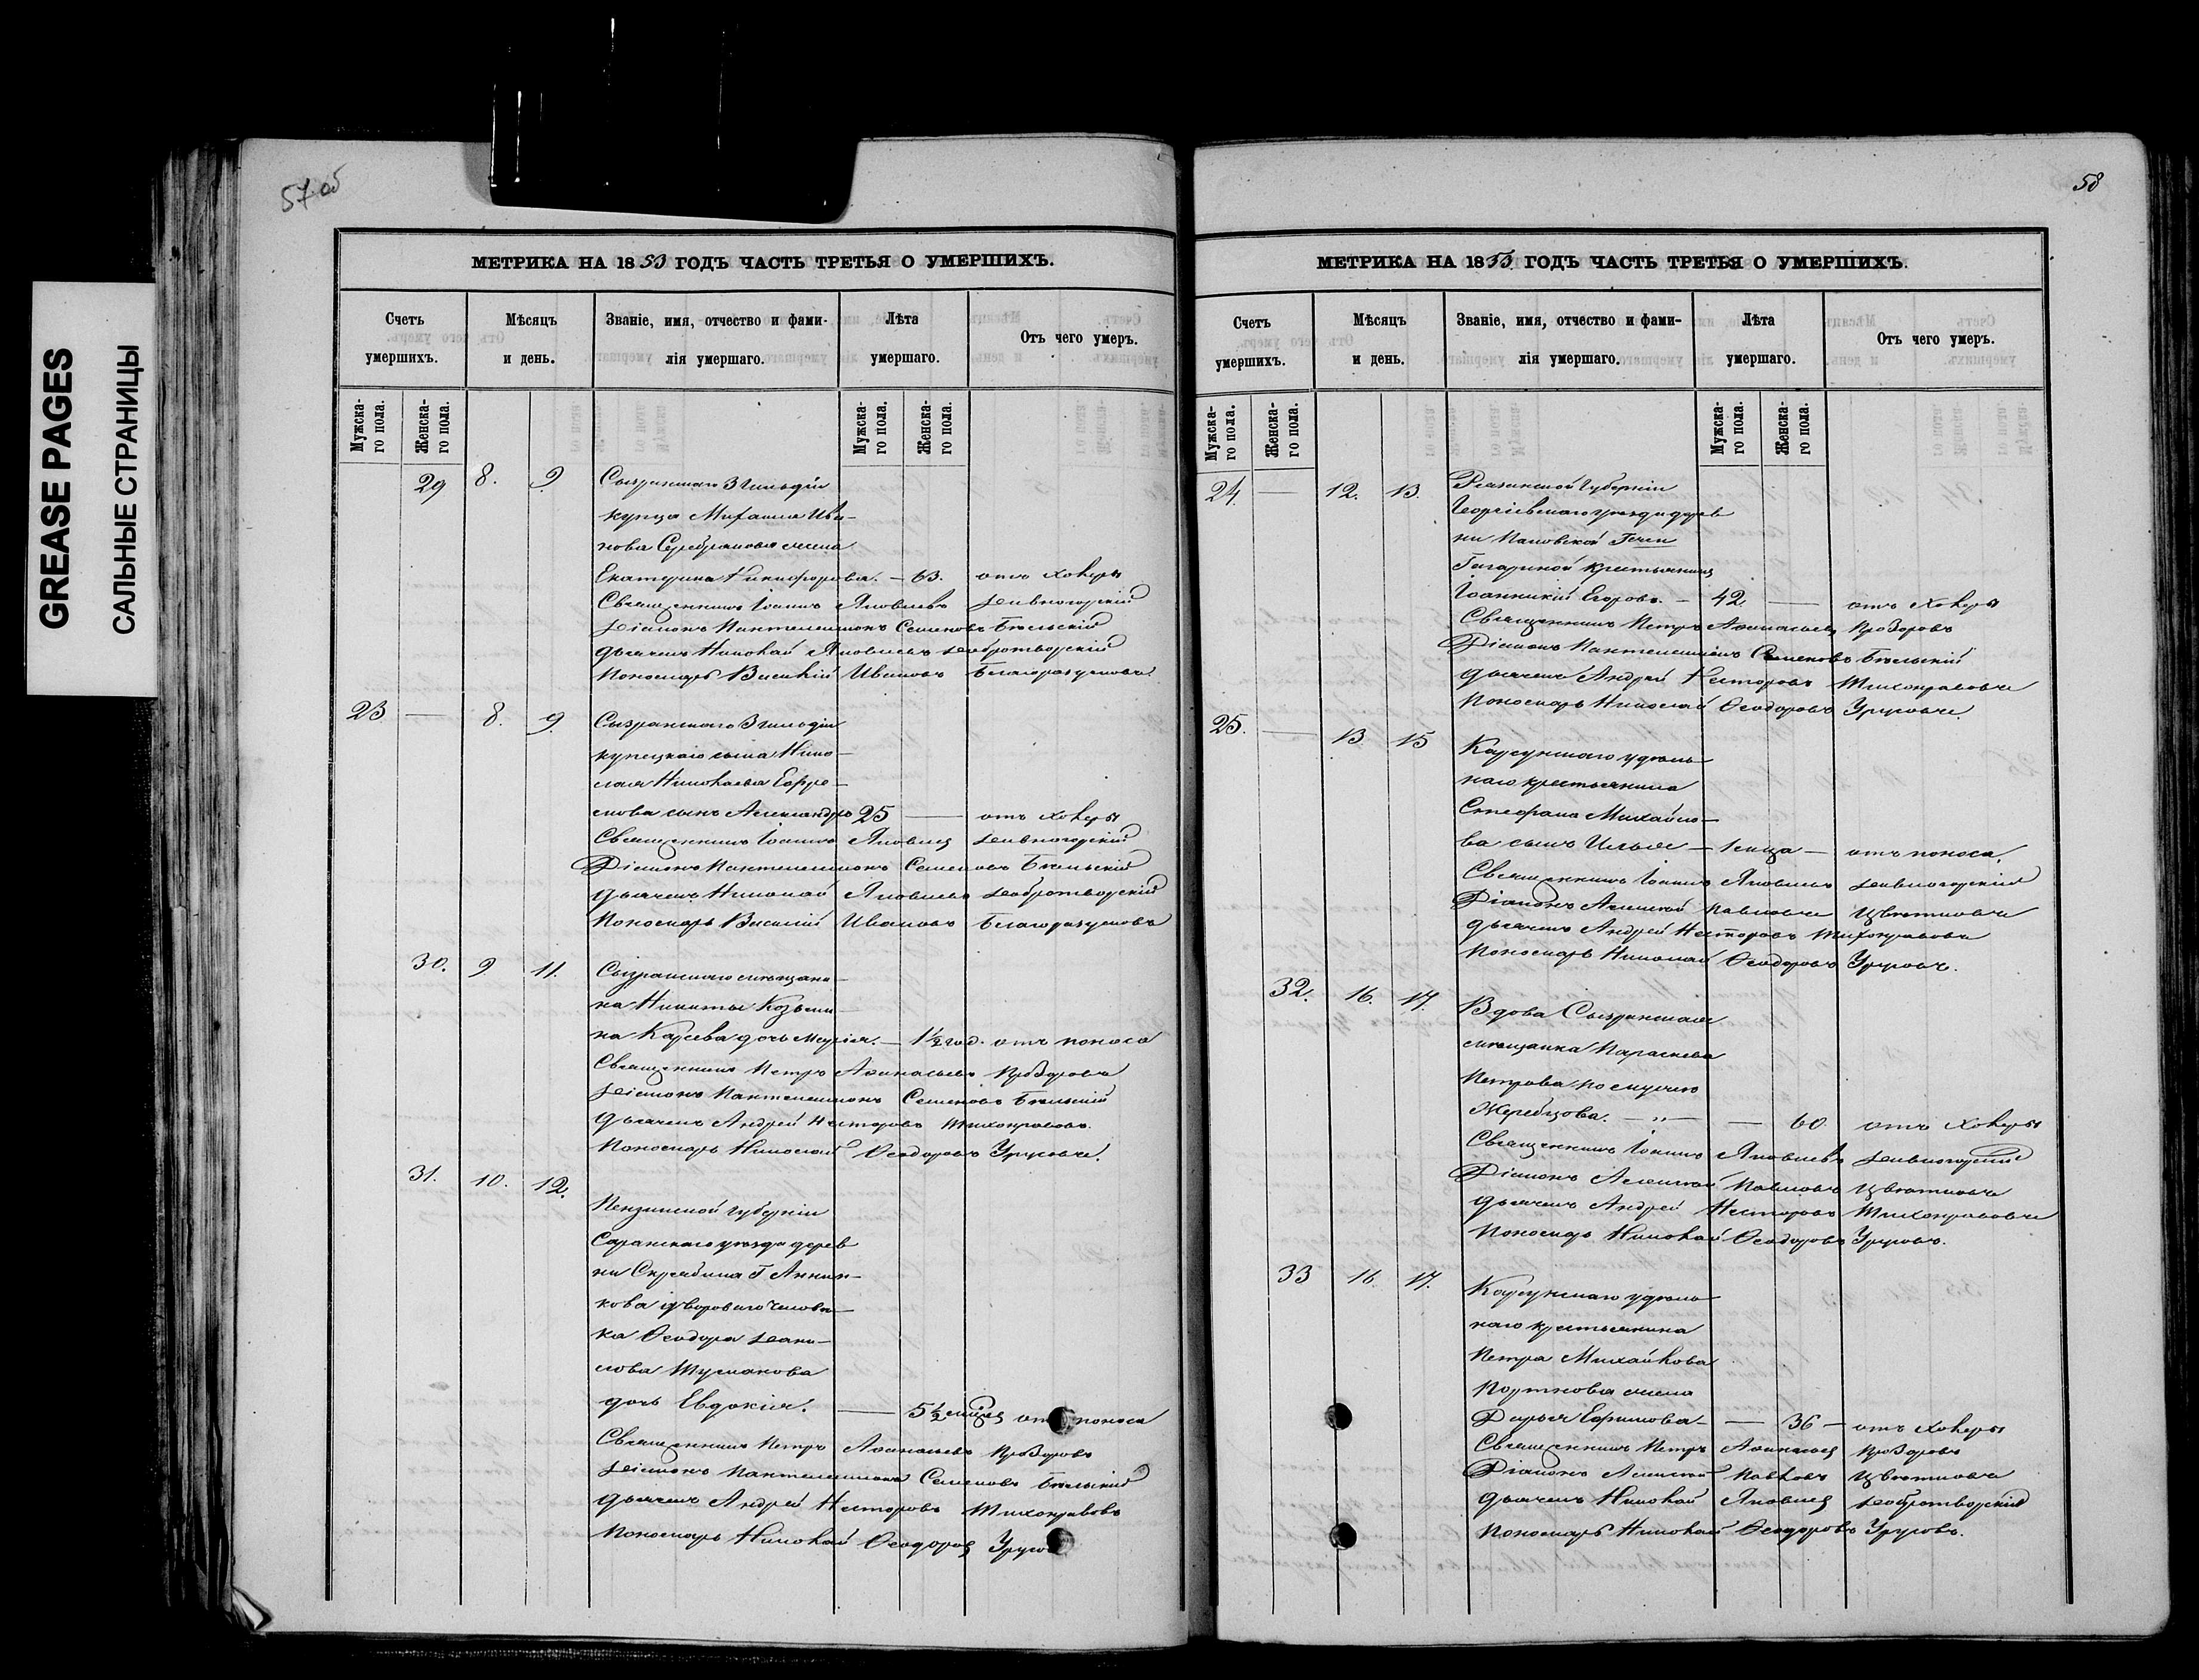 GREASE PAGES
САЛЬНЫЕ СТРАНИЦЫ
57 об
МЕТРИКА НА 1853 ГОДЪ ЧАСТЬ ТРЕТЬЯ О УМЕРШИХЪ.
Счетъ умершихъ.
Мѣсяцъ и день.
Званіе, имя, отчество и фами-
лія умершаго.
Лѣта умершаго.
Отъ чего умеръ.
Мужска-
го пола.
Женска-
го пола.
Мужска-
го пола.
Женска-
го пола.
29 8. 9. Сызранскаго 3 гильдіи
купца Михаила Ива-
нова Серебрякова жена
Екатерина Никифорова. — 63. отъ холеры
Священникъ Іоаннъ Яковлевъ Дивногорскій
Діаконъ Пантелеимонъ Семеновъ Бѣльскій
дьячекъ Николай Яковлевъ Добротворскій
Пономарь Василій Ивановъ Благоразумовъ
23 — 8. 9. Сызранскаго 3 гильдіи
купецкаго сына Нико-
лая Николаева Ефре-
мова сынъ Александръ 25 — отъ холеры
Священникъ Іоаннъ Яковлев Дивногорскій
Діаконъ Пантелеимонъ Семеновъ Бѣльскій
дьячекъ Николай Яковлевъ Добротворскій
Пономарь Василій Ивановъ Благоразумовъ
30. 9 11. Сызранскаго мѣщани-
на Никиты Козьми-
на Карева дочь Марія. — 1½ год. отъ поноса
Священникъ Петръ Афанасьевъ Прозоровъ
Діаконъ Пантелеимонъ Семеновъ Бѣльскій
дьячекъ Андрей Несторовъ Тихонравовъ.
Пономарь Николай Ѳеодоровъ Урусовъ.
31. 10. 12. Пензенской губерніи
Саранскаго уѣзда дерев
ни Скрябина Г Аннен-
кова дворового челове-
ка Ѳеодора Дани-
лова Тусмакова
дочь Евдокія. — 5½ мѣсяц отъ поноса
Священникъ Петръ Афанасьевъ Прозоровъ
Діаконъ Пантелеимонъ Семеновъ Бѣльскій
дьячекъ Андрей Несторовъ Тихонравовъ
Пономарь Николай Ѳеодоров Урусов
58
МЕТРИКА НА 1853 ГОДЪ ЧАСТЬ ТРЕТЬЯ О УМЕРШИХЪ.
Счетъ умершихъ.
Мѣсяцъ и день.
Званіе, имя, отчество и фами-
лія умершаго.
Лѣта умершаго.
Отъ чего умеръ.
Мужска-
го пола.
Женска-
го пола.
Мужска-
го пола.
Женска-
го пола.
24. — 12. 13. Рязанской губерніи
уѣзда дерев
ни
Гагариной крестьянинъ
Іоанникій Егоровъ. — 42. — отъ холеры
Священникъ Петръ Афанасьев Прозоровъ
Діаконъ Пантелеимонъ Семеновъ Бѣльскій
дьячекъ Андрей Несторовъ Тихонравовъ
Пономарь Николай Ѳеодоровъ Урусовъ.
25. — 13 15 Карсунскаго удѣль-
наго крестьянина
Стефана Михайло-
ва сынъ Илья — 1 мѣсяца — отъ поноса.
Священникъ Іоаннъ Яковлевъ Дивногорскій
Діаконъ Алексей Павловъ Цвѣтковъ
дьячекъ Андрей Несторовъ Тихонравовъ
Пономарь Николай Ѳеодоровъ Урусовъ.
32. 16. 17. Вдова Сызранская
мѣщанка Параскева
Петрова по мужѣ
Жеребцова. — „ — — 60. отъ холеры
Священникъ Іоаннъ Яковлевъ Дивногорскій
Діаконъ Алексей Павловъ Цвѣтковъ
дьячекъ Андрей Несторовъ Тихонравовъ
Пономарь Николай Ѳеодоровъ Урусовъ.
33 16 17. Карсунскаго удѣль-
наго крестьянина
Петра Михайлова
Портнова жена
Дарья Ефимова — — 36 — отъ холеры
Священникъ Петръ Афанасьев Прозоровъ
Діаконъ Алексей Павловъ Цвѣтковъ
дьячекъ Николай Яковлев Добротворскій
Пономарь Николай Ѳеодоровъ Урусовъ.